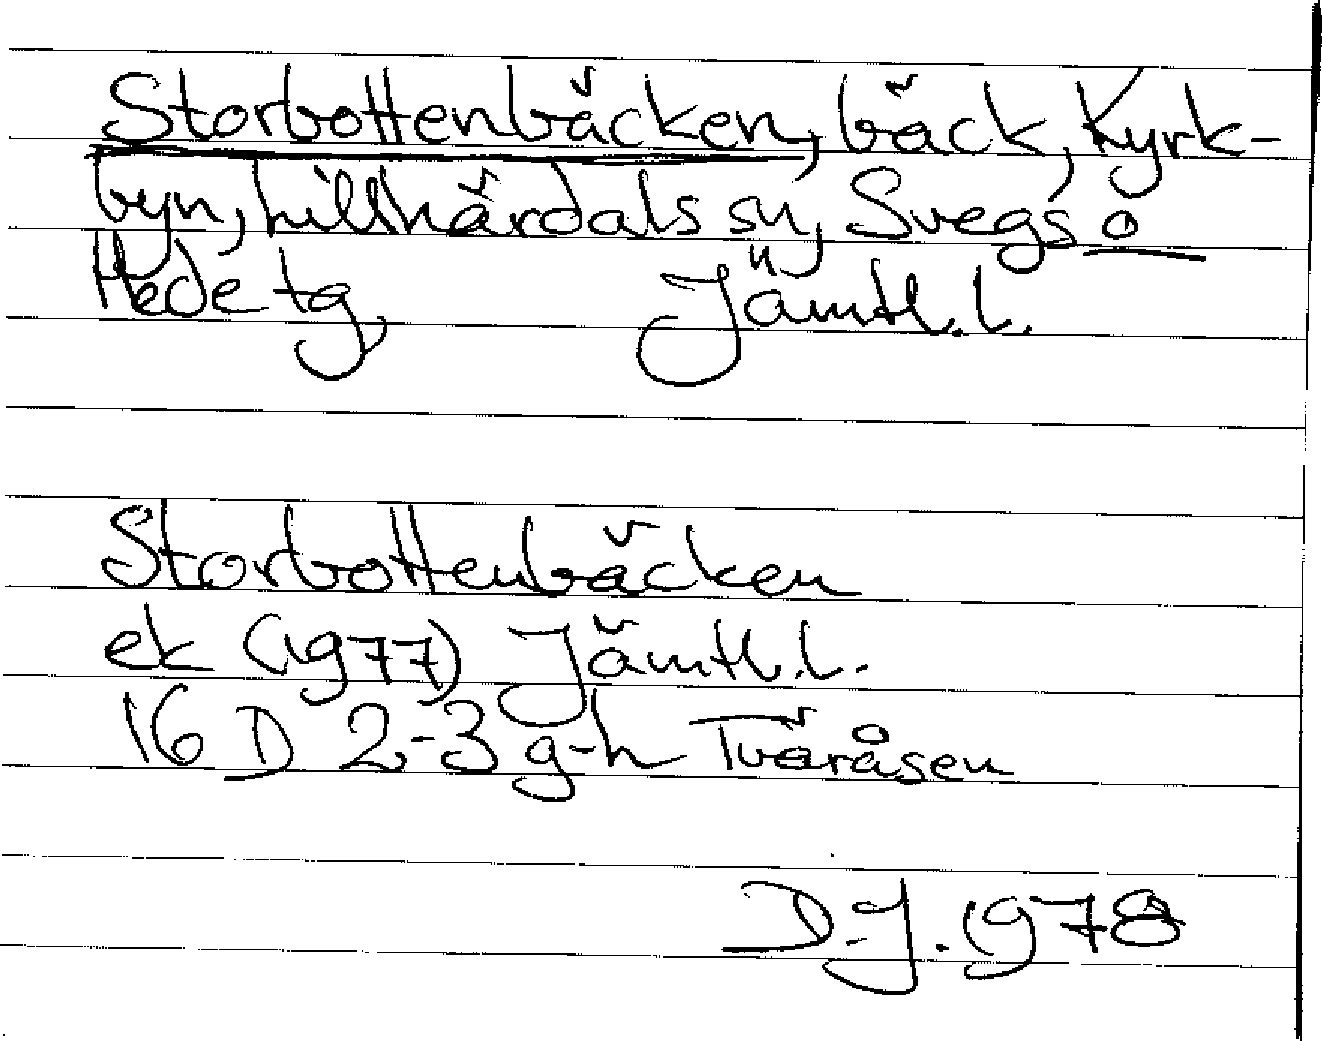 Storbottenbäcken, bäck, Kyrk-
byn, Lillhärdals sn, Svegs o
Hede tg, Jämtl. l.
Storbottenbäcken
ek (1977) Jämtl. l.
16 D 2-3 g-h Tväråsen
D.J. 1978